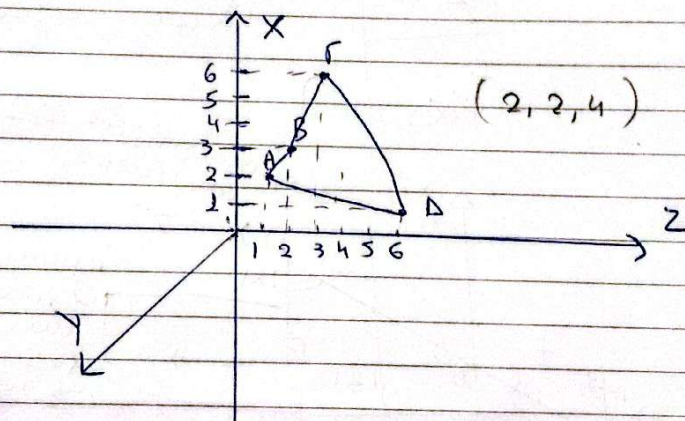 X
Γ
6
5
4
3
2
1
B
A
Δ
(2, 2, 4)
Z
1 2 3 4 5 6
Y